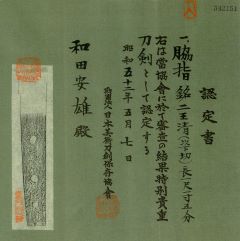 認定書
一、脇指 銘 二王清
右は当協会に於て審査の結果特別貴重
刀剣として認定する
昭和五十二年五月七日
財団法人日本美術刀剣保存協会
和田安雄殿